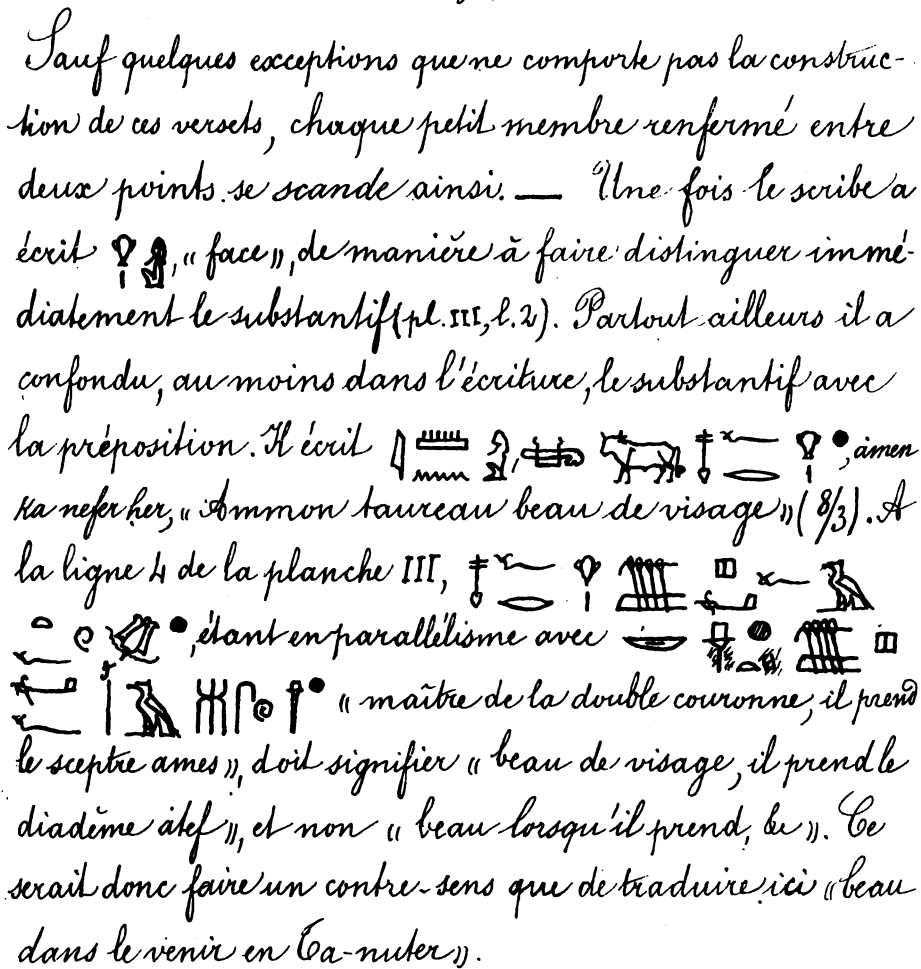 Sauf quelques exceptions que ne comporte pas la construc-
tion de ces versets, chaque petit membre renfermé entre
deux points se scande ainsi. — Une fois le scribe a
écrit , « face », de manière à faire distinguer immé-
diatement le substantif (pl. III, l. 2). Partout ailleurs il a
confondu, au moins dans l'écriture, le substantif avec
la préposition. Il écrit , àmen
ka nefer her, « Ammon taureau beau de visage » (8/3). A
la ligne 4 de la planche III,
, étant en parallélisme avec
« maître de la double couronne, il prend
le sceptre ames », doit signifier « beau de visage, il prend le
diadème àtef », et non « beau lorsqu'il prend, &c ». Ce
serait donc faire un contre-sens que de traduire ici « beau
dans le venir en Ta-nuter ».